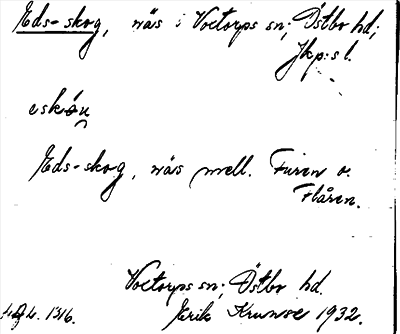 Eds-skog, näs i Voxtorps sn; Östbo hd;
Jkp:s l.
eskóu
Eds-skog, näs mell. Furen o.
Flåren.
Voxtorps sn; Östbo hd.
1316. Erik Krunse 1932.